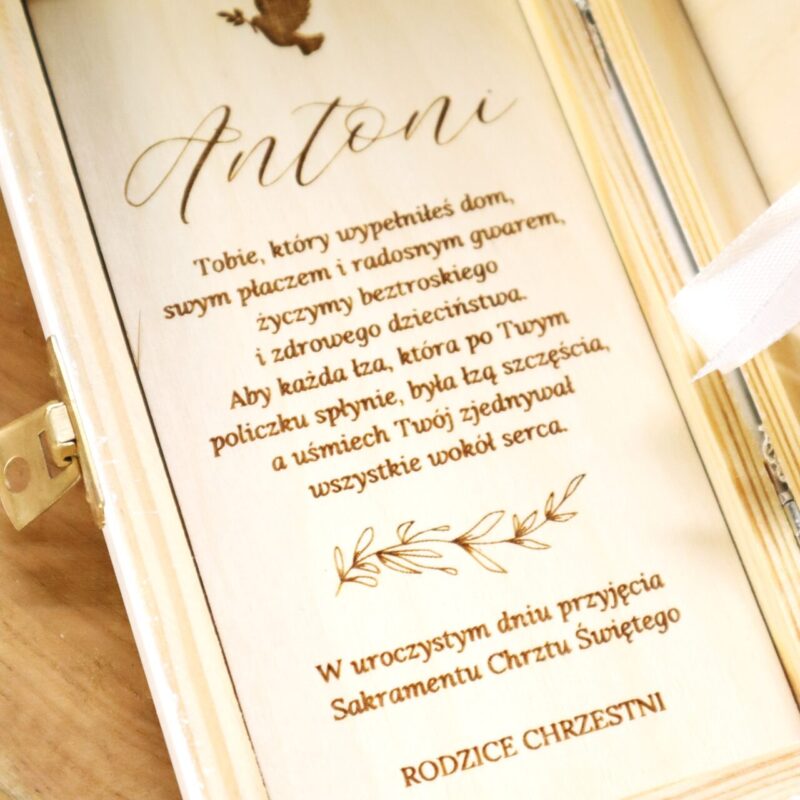 Antoni
Tobie, który wypełniłeś dom,
swym płaczem i radosnym gwarem,
życzymy beztroskiego
i zdrowego dzieciństwa.
Aby każda łza, która po Twym
policzku spłynie, była łzą szczęścia,
a uśmiech Twój zjednywał
wszystkie wokół serca.
W uroczystym dniu przyjęcia
Sakramentu Chrztu Świętego
RODZICE CHRZESTNI